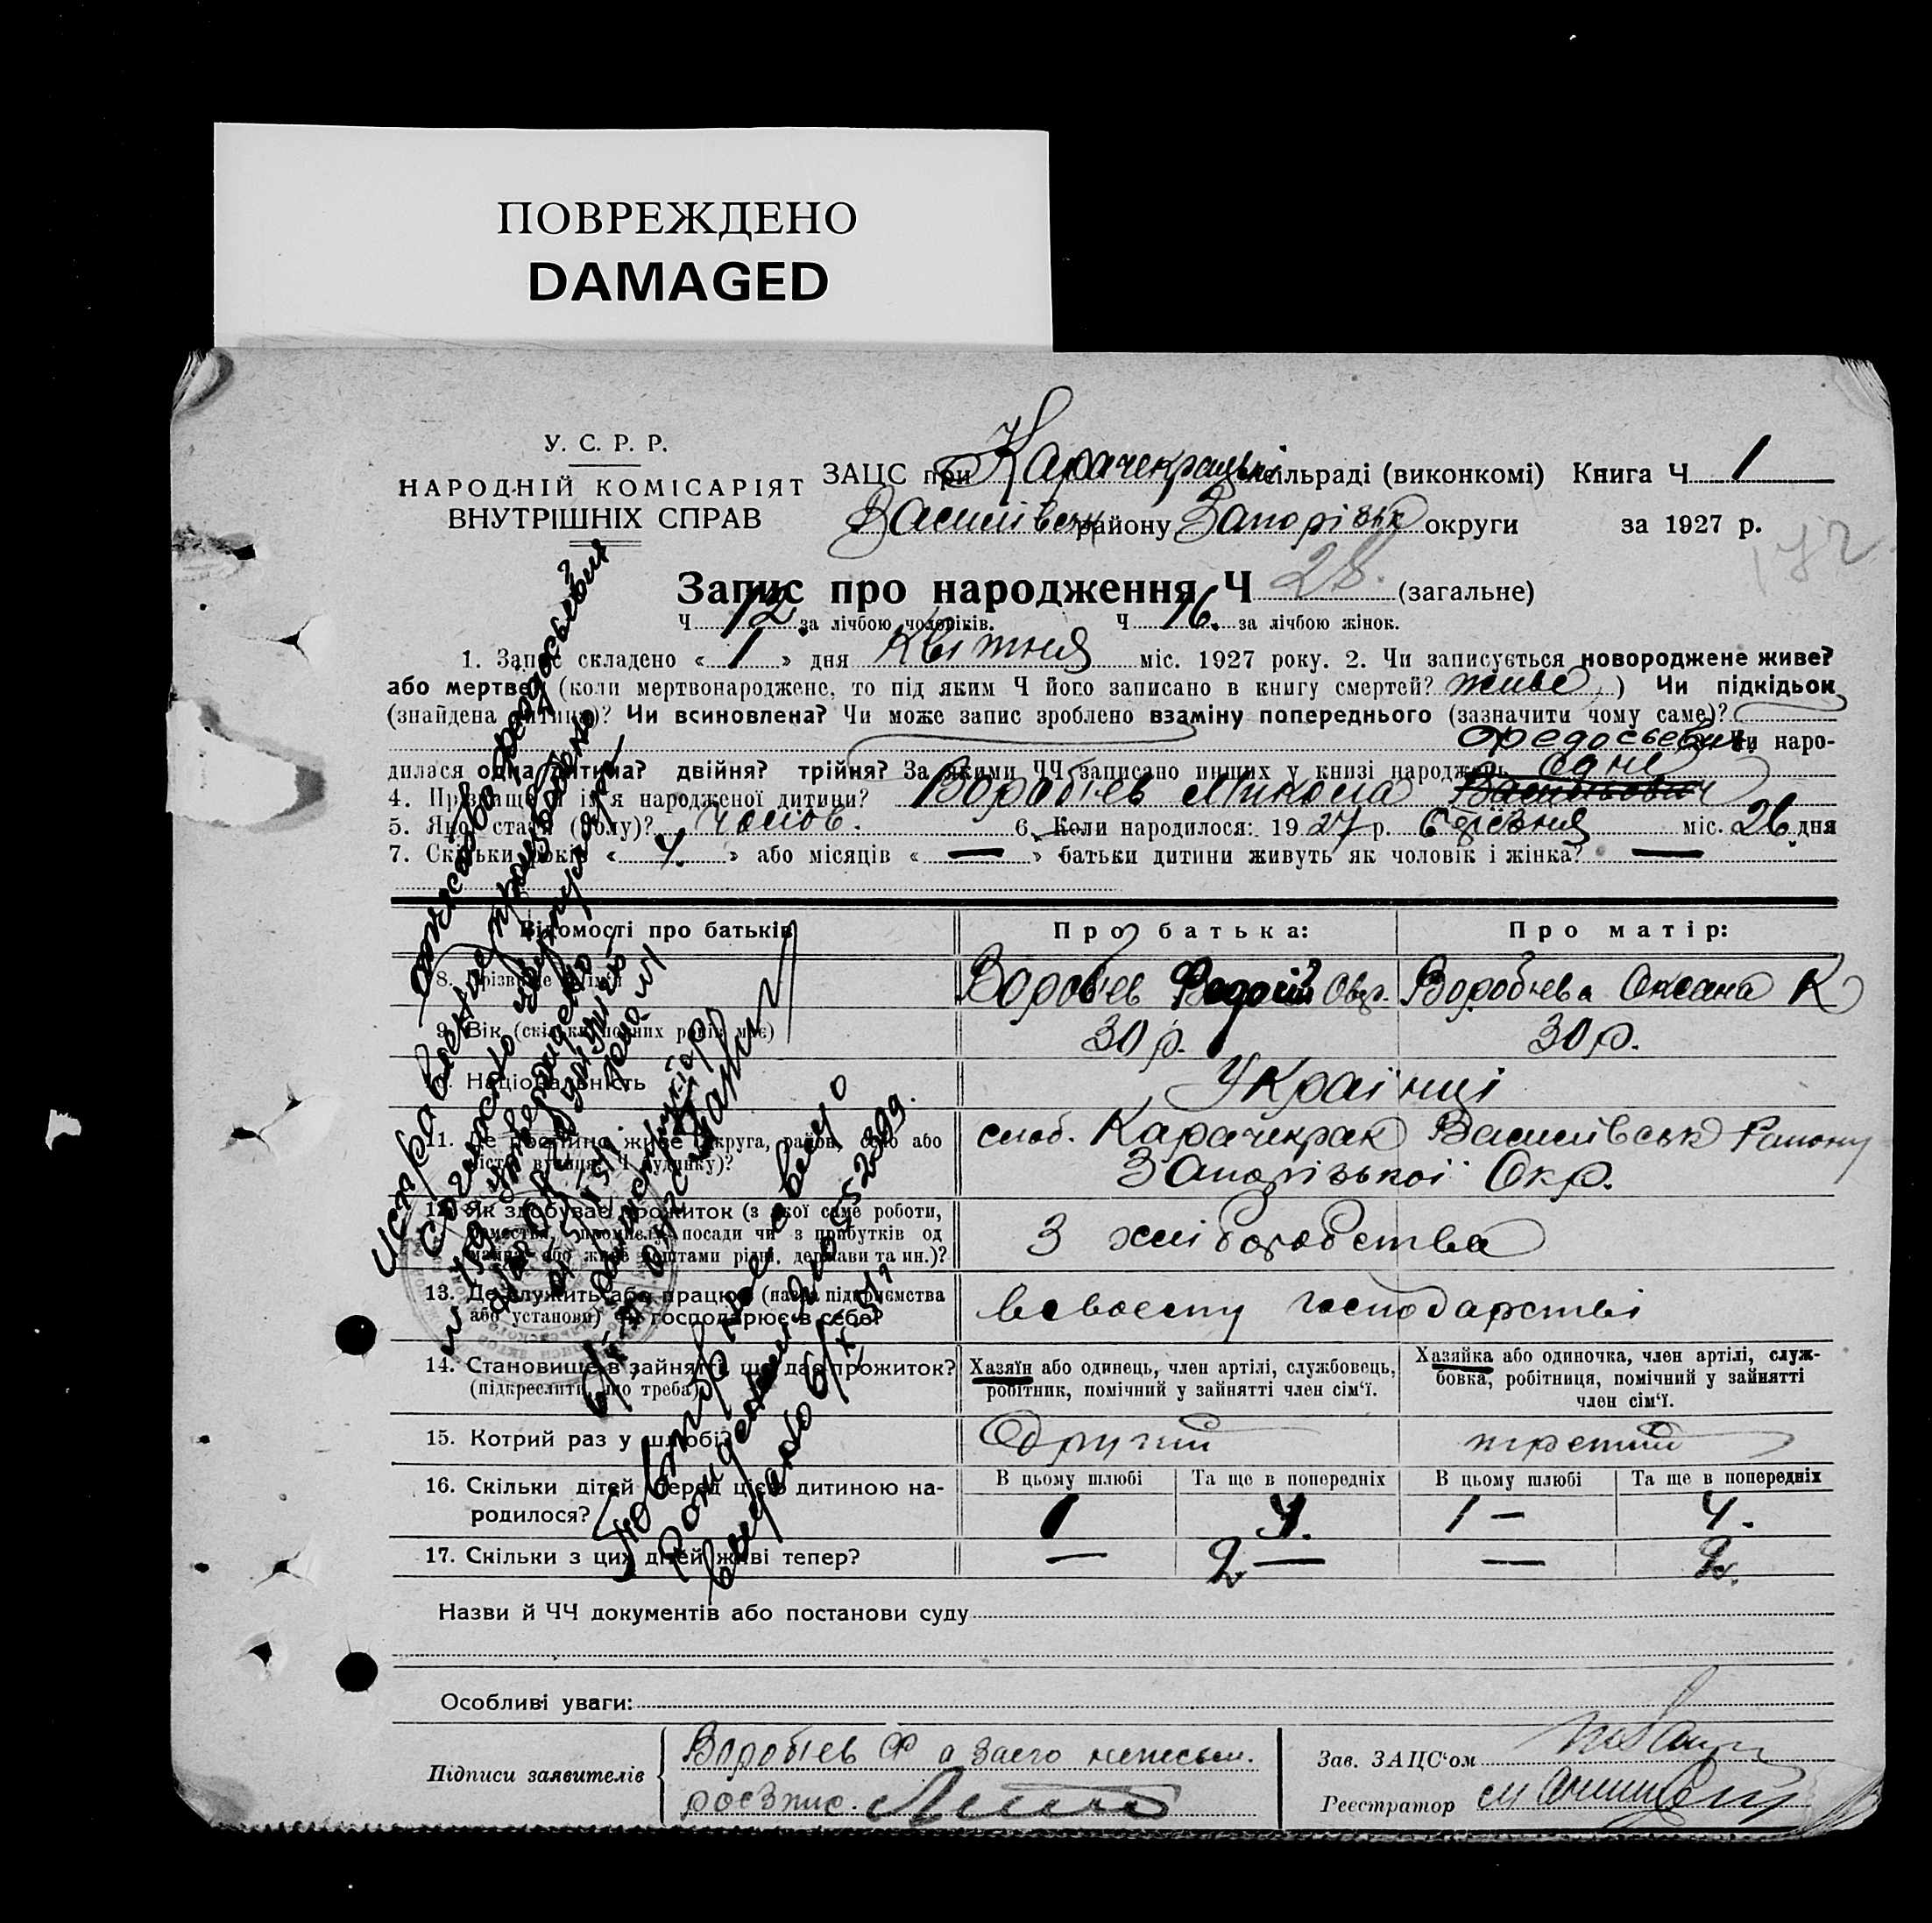 ПОВРЕЖДЕНО
DAMAGED
У. С. Р. Р.
НАРОДНІЙ КОМІСАРІЯТ
ВНУТРІШНІХ СПРАВ
ЗАЦС при Карачекрацькі сільраді (виконкомі) Книга Ч 1
Василівськ району Запорізьк округи за 1927 р.
172
Запис про народження Ч 28. (загальне)
Ч 12 за лічбою чоловіків. Ч 16. за лічбою жінок.
1. Запис складено « 1 » дня Квітня міс. 1927 року. 2. Чи записується новороджене живе?
або мертве? (коли мертвонароджене, то під яким Ч його записано в книгу смертей? живе ) Чи підкідьок
(знайдена дитина)? Чи всиновлена? Чи може запис зроблено взаміну попереднього (зазначити чому саме)?
Федосьевич Чи наро-
дилася одна дитина? двійня? трійня? За якими ЧЧ записано инших у книзі народжень одне
4. Прізвище й ім'я народженої дитини? Воробієв Микола Васильович
5. Якої стати (полу)? Чолов. 6. Коли народилося: 1927 р. березня міс. 26 дня
7. Скільки років « 4 » або місяців « — » батьки дитини живуть як чоловік і жінка? —
Відомості про батьків Про батька: Про матір:
8. Прізвище Воробієв Федосій Овр. Воробиева Оксана К
9. Вік (скільки повних років має) 30 р. 30 р.
10. Національність Українці
11. Де постійно живе (округа, район, село або слоб. Карачекрак Василівськ Району
місто, вулиця, Ч будинку)? Запорізької Окр.
12. Як здобуває прожиток (з якої саме роботи,
ремества, промислу, посади чи з прибутків од
майна, або живе коштами рідні, держави та ин.)? З хліборобства
13. Де служить або працює (назва підприємства
або установи) чи господарює в себе? всвоєму господарстві
14. Становище в зайнятті, що дає прожиток?
(підкреслити, що треба)
Хазяїн або одинець, член артілі, службовець,
робітник, помічний у зайнятті член сім'ї.
Хазяйка або одиночка, член артілі, служ-
бовка, робітниця, помічний у зайнятті
член сім'ї.
15. Котрий раз у шлюбі? Другий третий
16. Скільки дітей перед цією дитиною на-
родилося?
В цьому шлюбі Та ще в попередніх В цьому шлюбі Та ще в попередніх
1 4. 1 — 4.
17. Скільки з цих дітей живі тепер? — 2 — — 2.
Назви й ЧЧ документів або постанови суду
Особливі уваги:
Підписи заявителів Воробієв Ф а заего неписьм.
росзпис.
Зав. ЗАЦС'ом
Реєстратор
исправление отчество Федосьевич
Согласно
Повторное св-во о
Рождении
выдано 6/